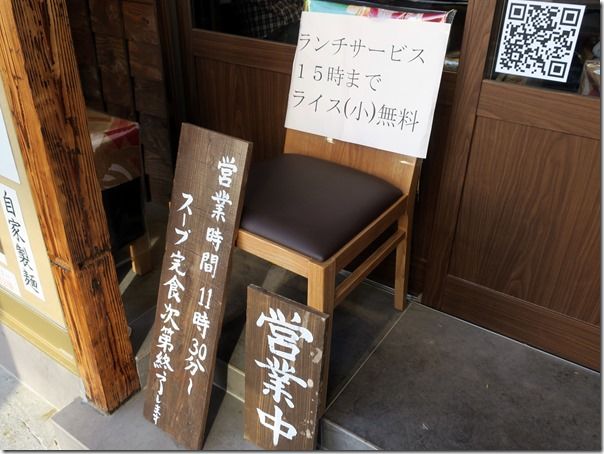 ランチサービス
15時まで
ライス(小)無料
営業時間 11時30分~
スープ完食次第終了します
営業中
自家製麺